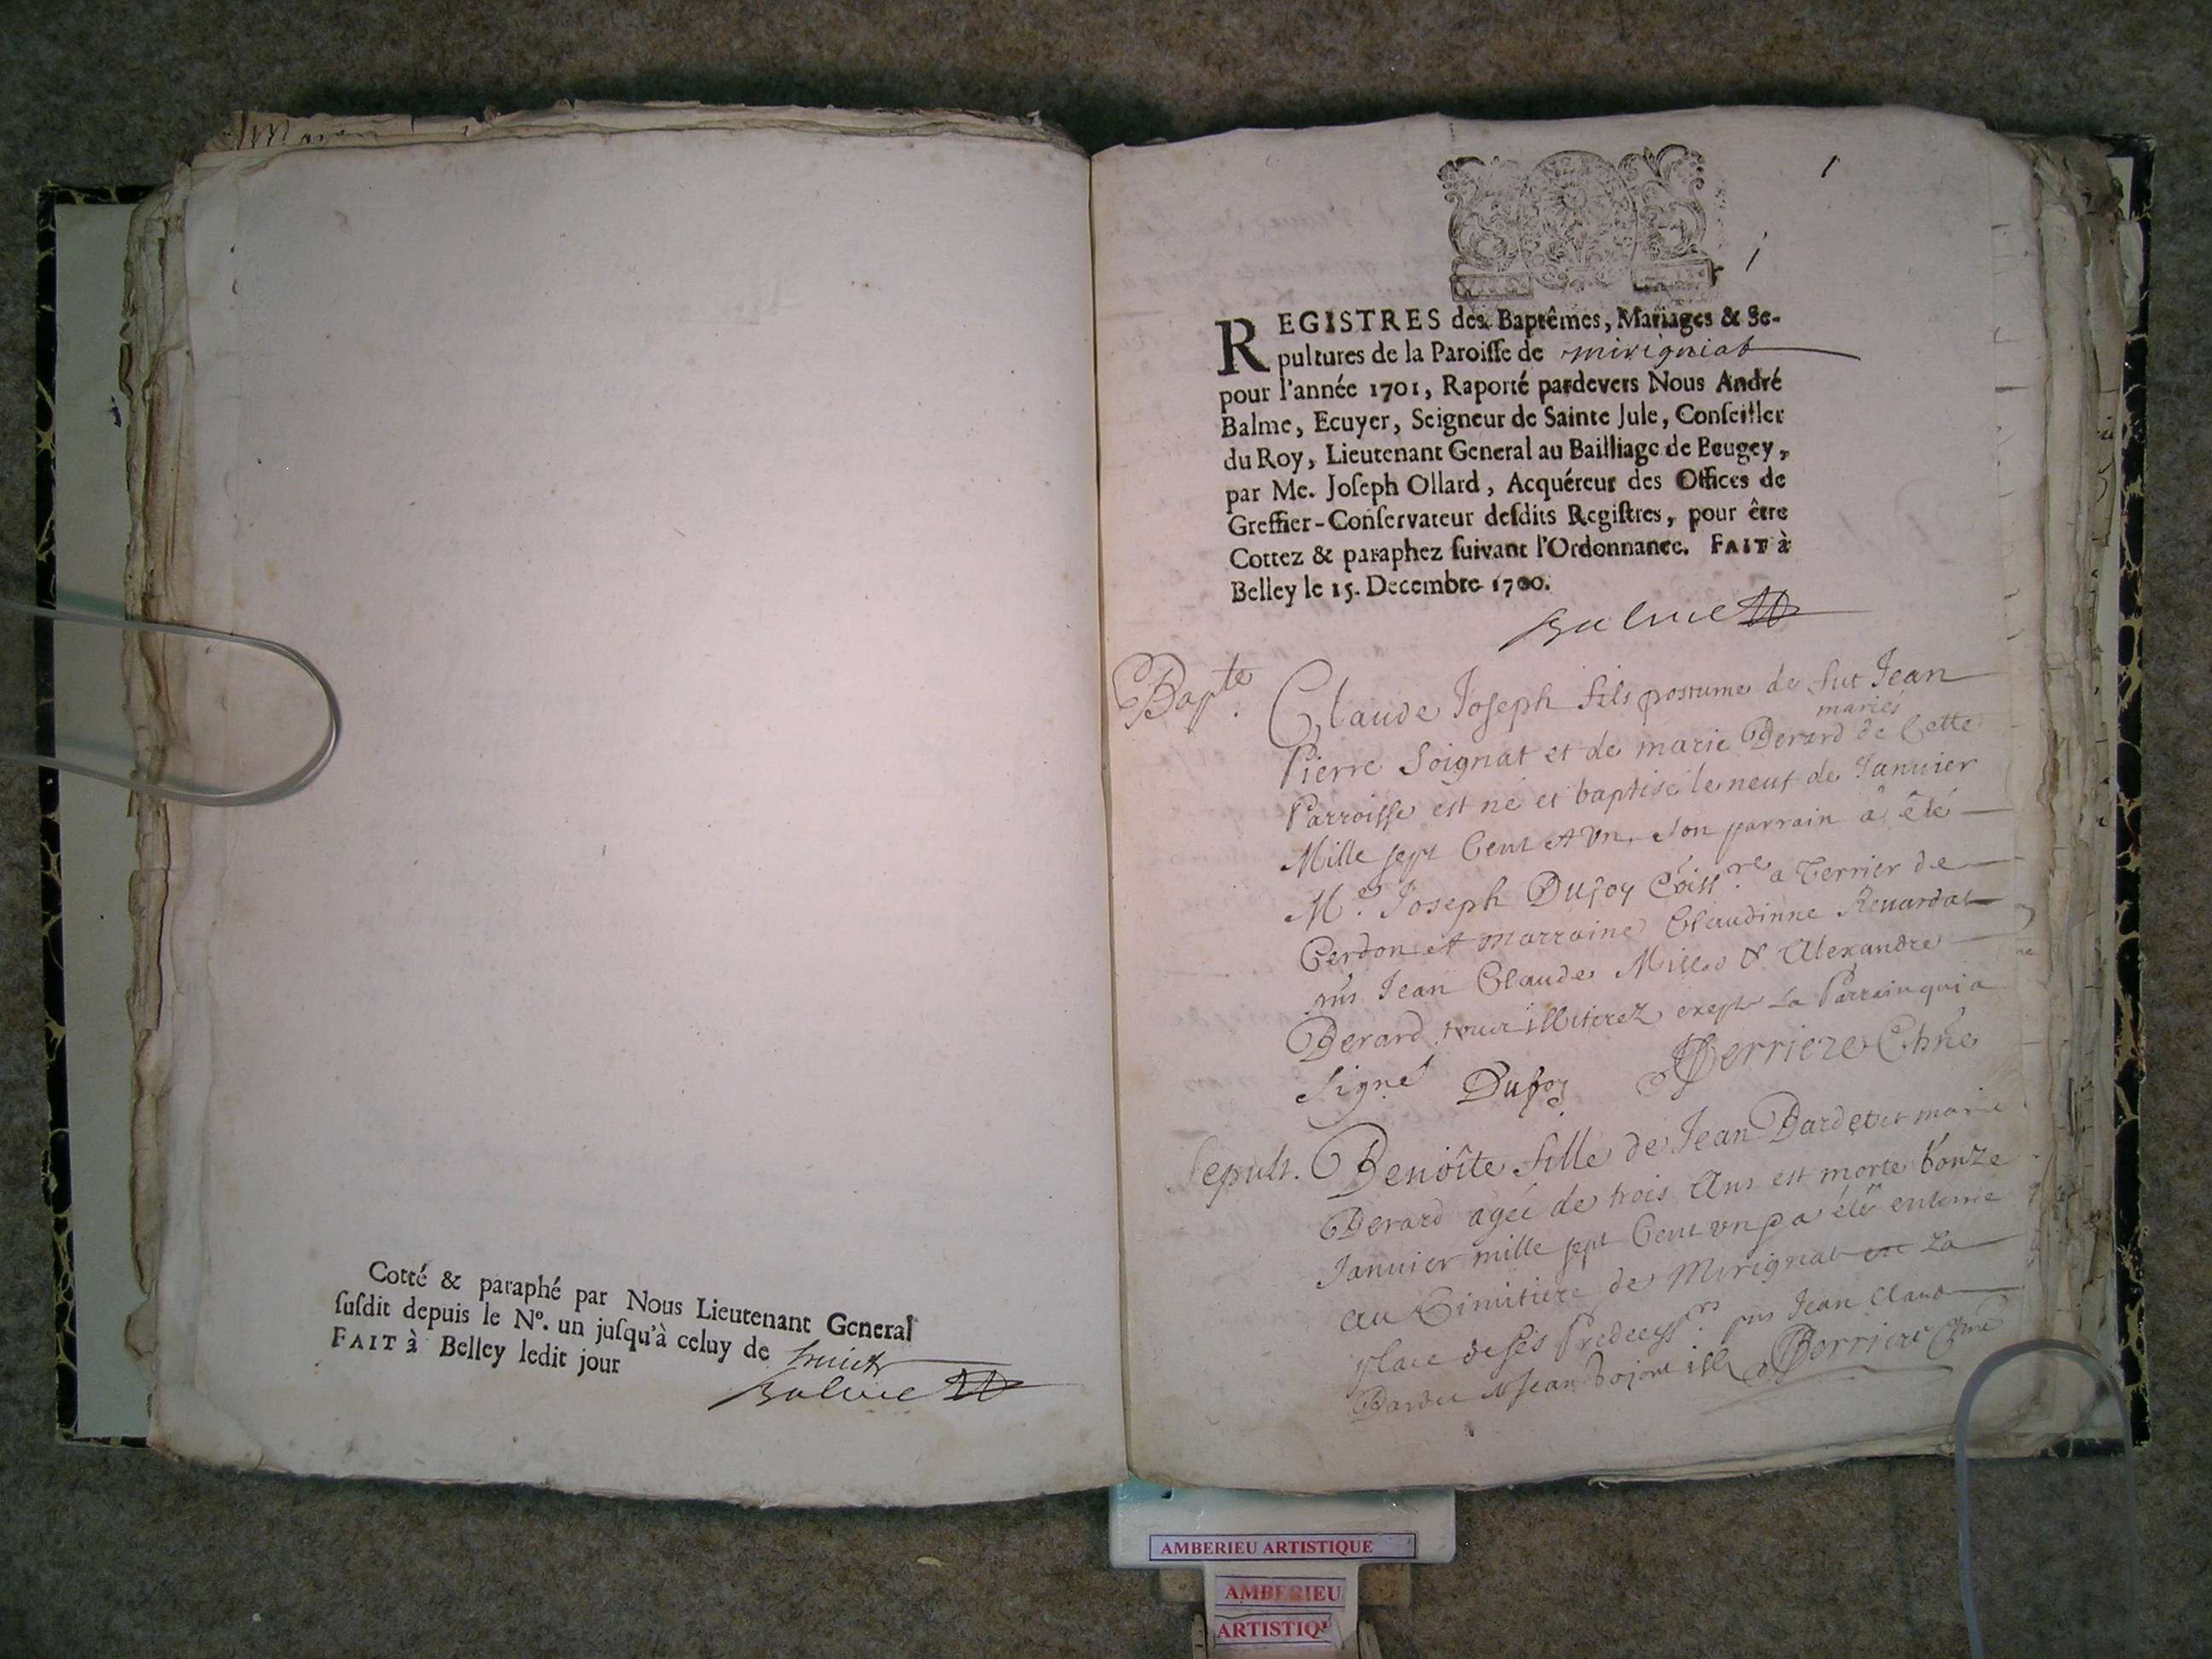 Cotté & paraphé par Nous Lieutenant General
susdit depuis le N°. un jusqu'à celuy de huict
FAIT à Belley ledit jour
Balme
1
1
REGISTRES des Baptêmes, Mariages & Se-
pultures de la Paroisse de mirigniat
pour l'année 1701, Raporté pardevers Nous André
Balme, Ecuyer, Seigneur de Sainte Jule, Conseiller
du Roy, Lieutenant General au Bailliage de Beugey,
par Me. Joseph Ollard, Acquéreur des Offices de
Greffier-Conservateur desdits Registres, pour être
Cottez & paraphez suivant l'Ordonnance. FAIT à
Belley le 15. Decembre 1700.
Balme
Bapte. Claude Joseph fils postume de fut Jean
mariés
Pierre Soignat et de marie Derard de Cette
Parroisse est né et baptisé le neuf de Januier
Mille sept Cent et Vn. Son parrain à été
Me. Joseph Dufoy a Terrier de
Cerdon et marraine Claudinne Reuardat
Jean Claude Millod & Alexandre
Derard tous illiterez exepte Le Parrain qui a
Signé Dufoy Perriere
Sepult. Benoîte fille de Jean Dardet et marie
Derard agée de trois Ans est morte l'onze
Januier mille sept Cent vn a été enterrée
au Cimitiere de Mirignat en La
place de ses Jean Claud
Dardet & Jean Perriere
AMBERIEU ARTISTIQUE
AMBERIEU
ARTISTIQU